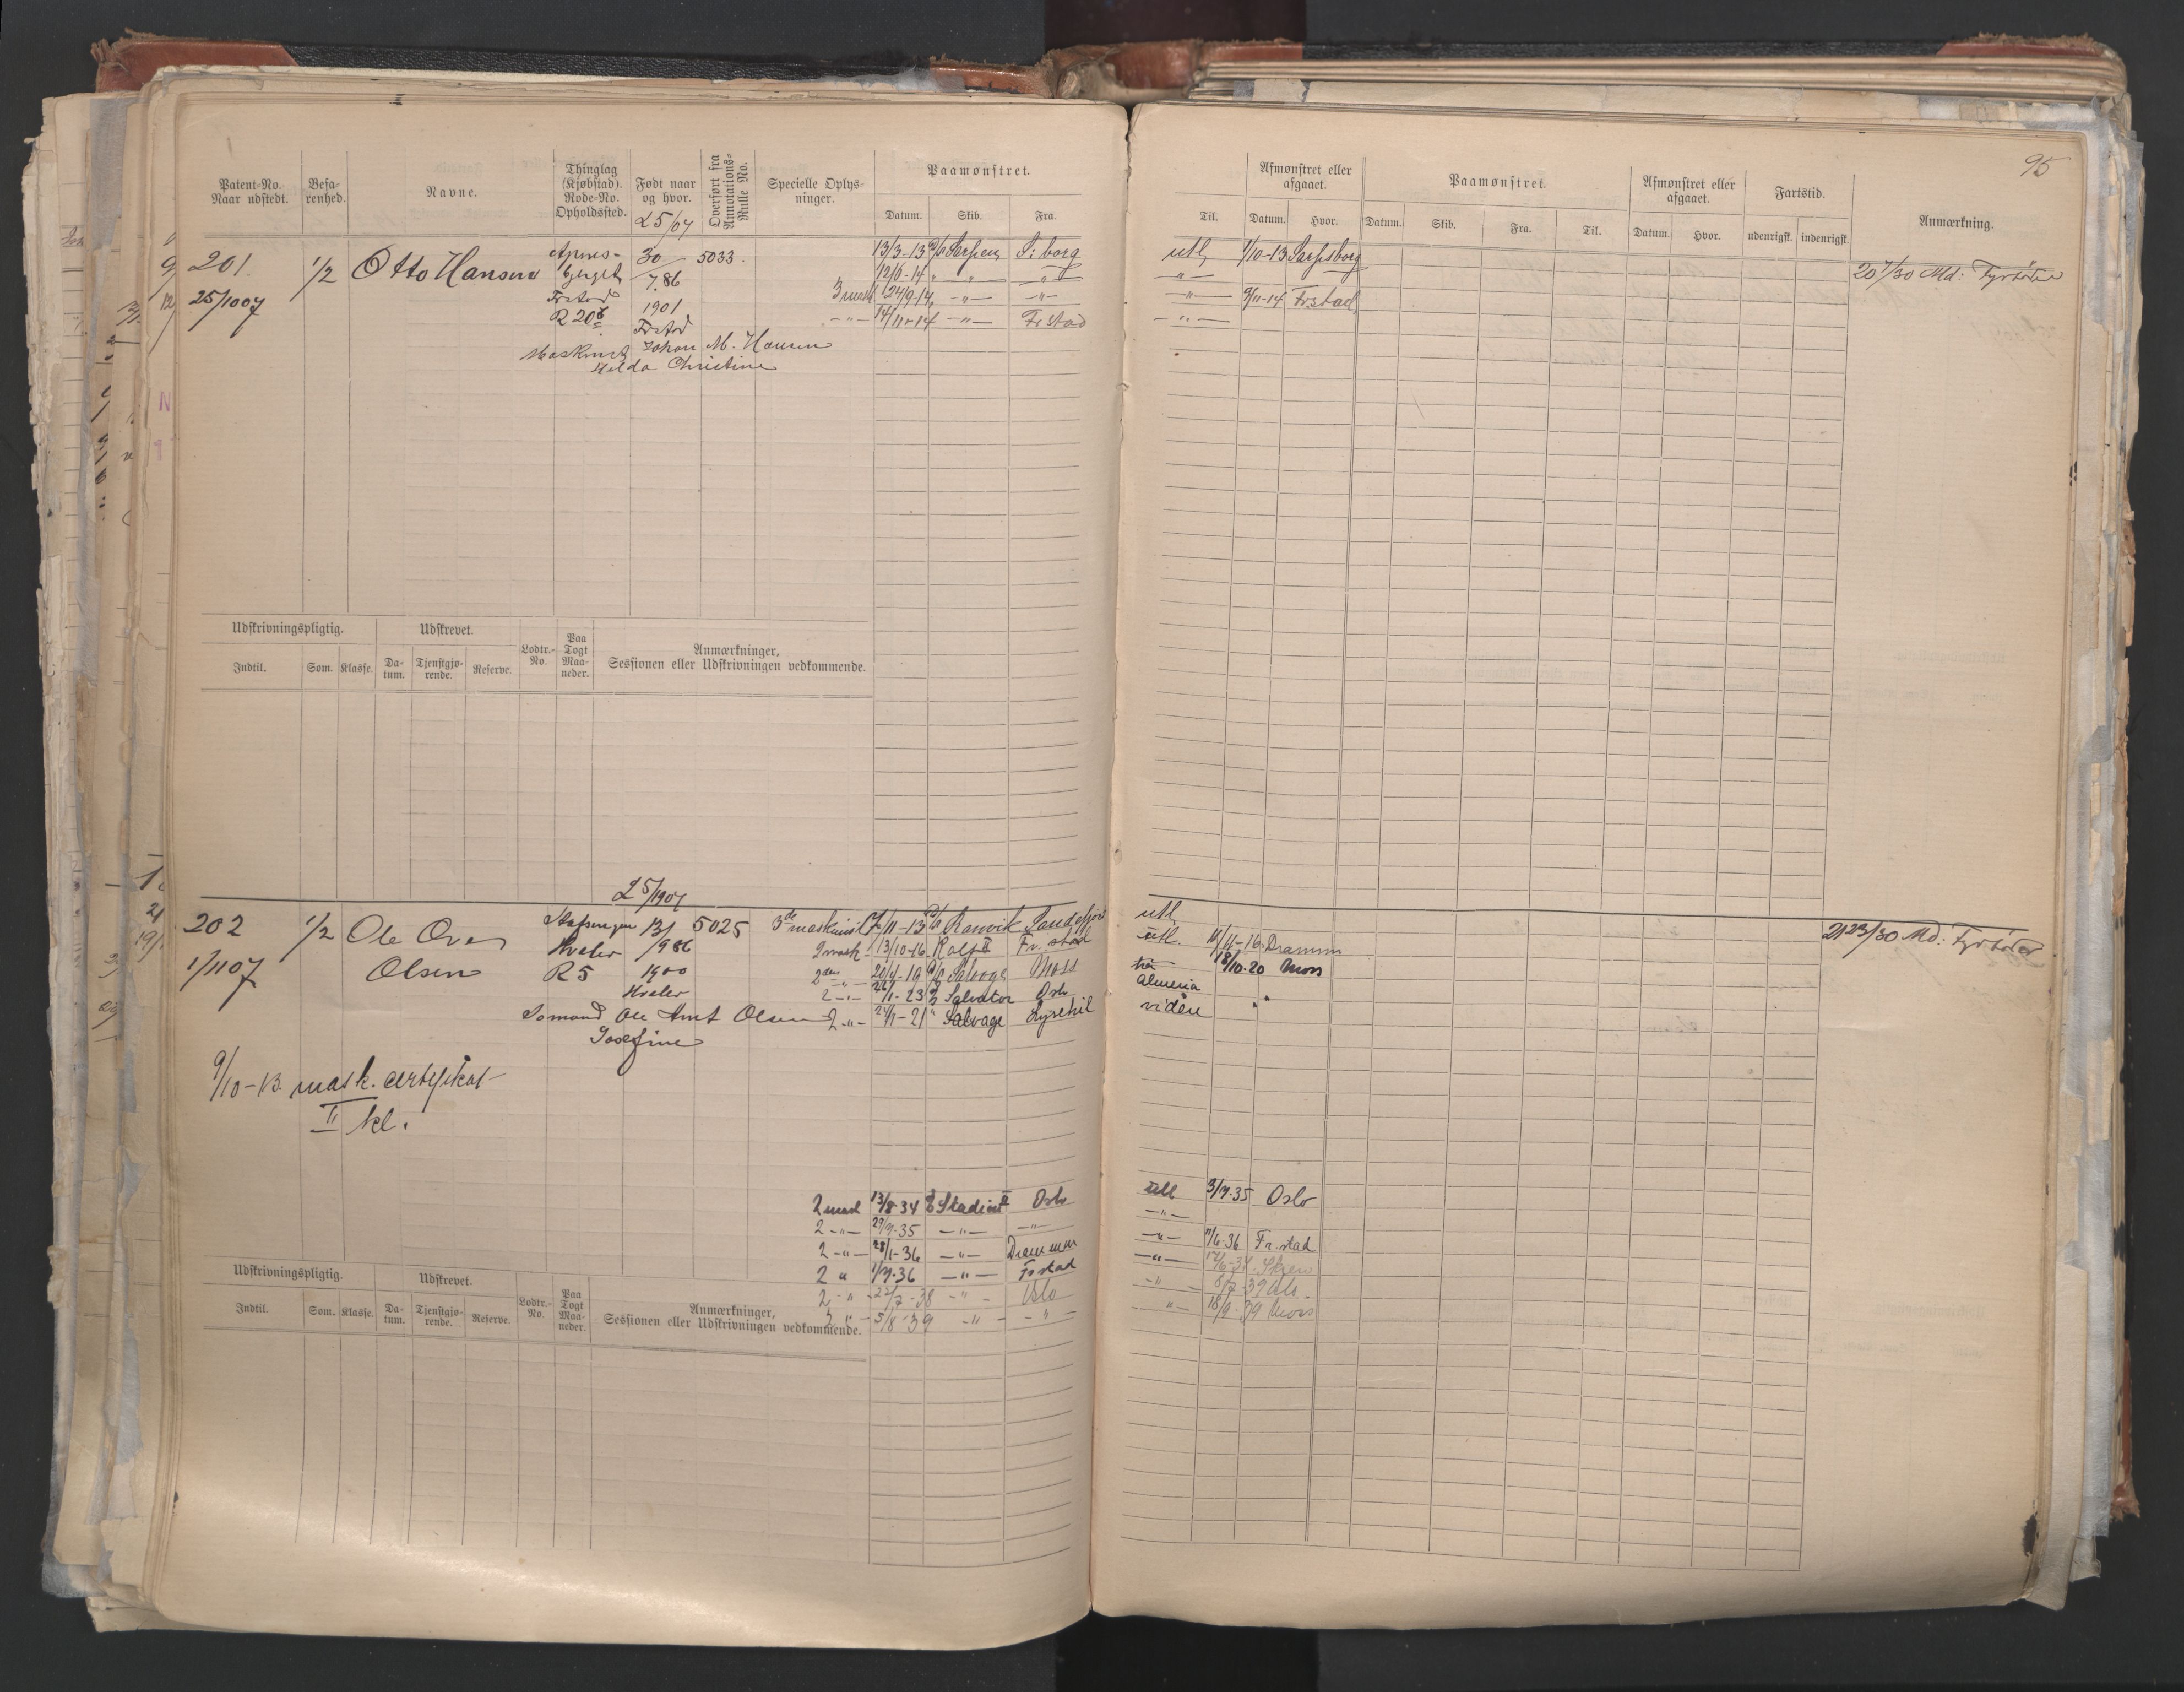 95
Patent-No. Naar udstedt.
Befarenhed.
Navne.
Thinglag (Kjøbstad). Rode-No. Opholdssted.
Født naar og hvor.
Overført fra Annotations-Rulle No.
Specielle Oplysninger.
Paamønstret.
Datum. Skib. Fra.
Til.
Afmønstret eller afgaaet.
Datum. Hvor.
Paamønstret.
Datum. Skib. Fra. Til.
Afmønstret eller afgaaet.
Datum. Hvor.
Fartstid.
udenrigsk. indenrigsk.
Anmærkning.
25/07
201 1/2 Otto Hansen 30 5033. 13/3-13 Sarpen S:borg utl 1/10-13 Sarpsborg
7.86 12/6-14 " "
25/1007 Frstad 1901 3 mask 24/9-14 -"- -"- -"- 9/11-14 Frstad
R 206 Frstad -"- 14/11-14 -"- Frstad -"-
20 7/30 Md: Fyrbøter
Maskinist Johan M. Hansen
Hilda Christine
Udskrivningspligtig.
Udskrevet.
Lodtr.-No.
Paa Togt Maaneder.
Anmærkninger,
Sessionen eller Udskrivningen vedkommende.
Indtil. Som. Klasse. Datum. Tjenstgjørende. Reserve.
25/1907
202 1/2 Ole Ove 13/ 5025 3de maskinist /11-13 Ranvik Sandefjord utl
Hvaler /986 2 mask 13/10-16 Rolf II Fr.stad utl. 11/11-16 Drammen
1/1107 Olsen R 5 1900 2den 20/4-19 Salvage Moss 18/10-20 Moss
Hvaler 2 -"- /1-23 Salvator Oslo Almeria
Sømand Ole Amt Olsen 2 -"- /1-21 " Salvage Lysekil viden "
Josefine
21 23/30 Md: Fyrbøter
9/10-13. mask. certifikat
II kl.
2 mask 13/8-34 Stadion II Oslo utl 3/7-35 Oslo
2 -"- 29/7-35 -"- -"- -"-
2 -"- 28/1-36 -"- Drammen -"- 11/6-36 Fr.stad
2 " 1/7-36 -"- Frstad -"- Skien
2 " 22/7-38 " - Oslo -"- 8/7-39 Oslo
3 " - 5/8-39 -"- - " - " 18/9-39 Moss
Udskrivningspligtig.
Udskrevet.
Lodtr.-No.
Paa Togt Maaneder.
Anmærkninger,
Sessionen eller Udskrivningen vedkommende.
Indtil. Som. Klasse. Datum. Tjenstgjørende. Reserve.